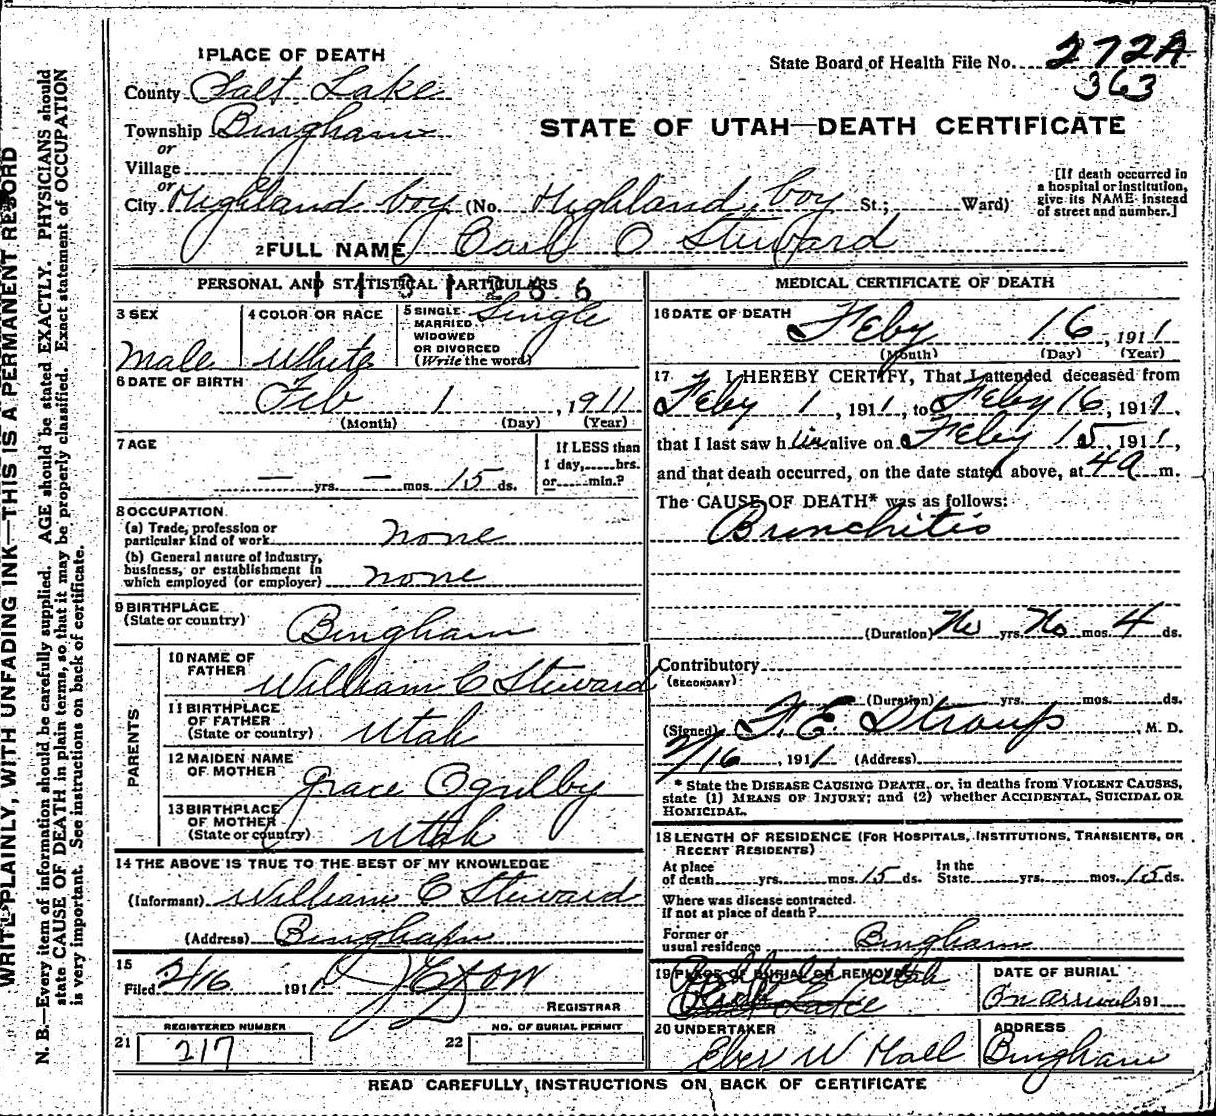 WRITE PLAINLY, WITH UNFADING INK—THIS IS A PERMANENT RECORD
N. B.—Every item of information should be carefully supplied. AGE should be stated EXACTLY. PHYSICIANS should
state CAUSE OF DEATH in plain terms, so that it may be properly classified. Exact statement of OCCUPATION
is very important. See instructions on back of certificate.
1 PLACE OF DEATH
State Board of Health File No. 272A
363
County Salt Lake
Township Bingham
or
STATE OF UTAH—DEATH CERTIFICATE
Village
or
City Highland boy (No. Highland boy St.; Ward)
[If death occurred in
a hospital or institution,
give its NAME instead
of street and number.]
2 FULL NAME Carl O Steward
PERSONAL AND STATISTICAL PARTICULARS
3 SEX Male
4 COLOR OR RACE White
5 SINGLE
MARRIED
WIDOWED
OR DIVORCED
(Write the word) Single
6 DATE OF BIRTH
Feb 1, 1911
(Month) (Day) (Year)
7 AGE
— yrs. — mos. 15 ds.
If LESS than
1 day, hrs.
or min.?
8 OCCUPATION
(a) Trade, profession or
particular kind of work none
(b) General nature of industry,
business, or establishment in
which employed (or employer) none
9 BIRTHPLACE
(State or country) Bingham
PARENTS
10 NAME OF
FATHER William C Steward
11 BIRTHPLACE
OF FATHER
(State or country) Utah
12 MAIDEN NAME
OF MOTHER Grace
13 BIRTHPLACE
OF MOTHER
(State or country) Utah
14 THE ABOVE IS TRUE TO THE BEST OF MY KNOWLEDGE
(Informant) William C Steward
(Address) Bingham
15
Filed 2/16 1911
REGISTRAR
REGISTERED NUMBER
21 217
NO. OF BURIAL PERMIT
22
MEDICAL CERTIFICATE OF DEATH
16 DATE OF DEATH
Feby 16, 1911
(Month) (Day) (Year)
17 I HEREBY CERTIFY, That I attended deceased from
Feby 1, 1911, to Feby 16, 1911,
that I last saw him alive on Feby 15, 1911,
and that death occurred, on the date stated above, at 4 a m.
The CAUSE OF DEATH* was as follows:
Bronchitis
(Duration) No yrs. No mos. 4 ds.
Contributory
(SECONDARY)
(Duration) yrs. mos. ds.
(Signed) F. E. Straup, M. D.
2/16, 1911 (Address)
* State the DISEASE CAUSING DEATH, or, in deaths from VIOLENT CAUSES,
state (1) MEANS OF INJURY; and (2) whether ACCIDENTAL, SUICIDAL OR
HOMICIDAL.
18 LENGTH OF RESIDENCE (FOR HOSPITALS, INSTITUTIONS, TRANSIENTS, OR
RECENT RESIDENTS)
At place
of death yrs. mos. 15 ds.
In the
State yrs. mos. 15 ds.
Where was disease contracted.
If not at place of death?
Former or
usual residence Bingham
19 PLACE OF BURIAL OR REMOVAL
DATE OF BURIAL
On arrival 191
20 UNDERTAKER
Eber W Hall
ADDRESS
Bingham
READ CAREFULLY, INSTRUCTIONS ON BACK OF CERTIFICATE